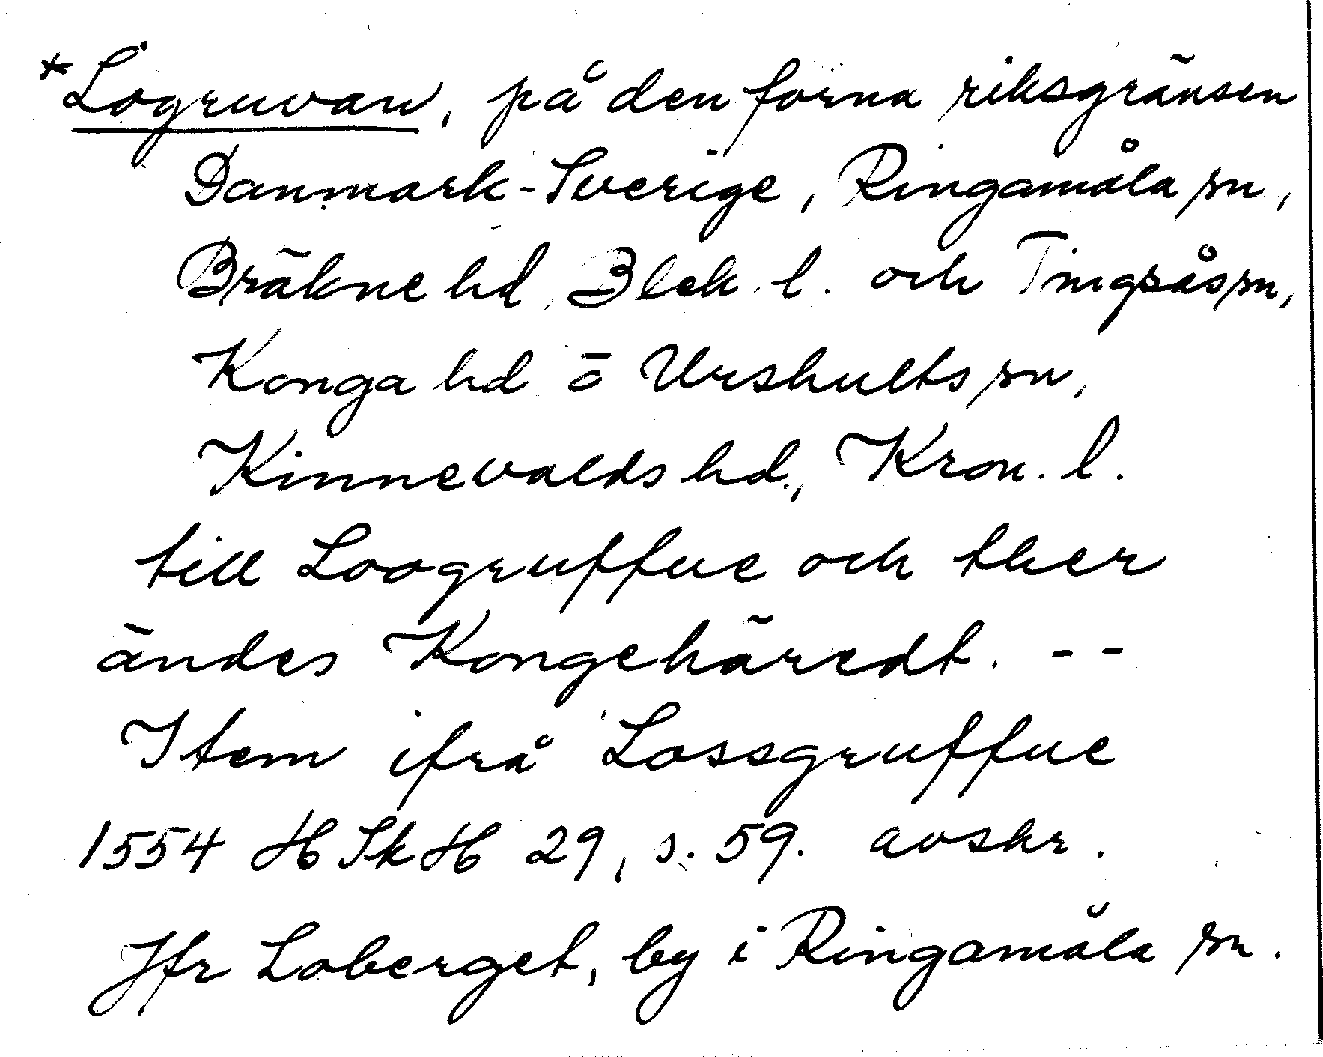 *Logruvan, på den forna riksgränsen
Danmark-Sverige, Ringamåla sn,
Bräkne hd, Blek. l. och Tingsås sn,
Konga hd o Urshults sn,
Kinnevalds hd., Kron. l.
till Loogruffue och ther
ändes Kongehäredt. --
Item ifrå Lossgruffue
1554 HSkH 29, s. 59. avskr.
Jfr Loberget, by i Ringamåla sn.